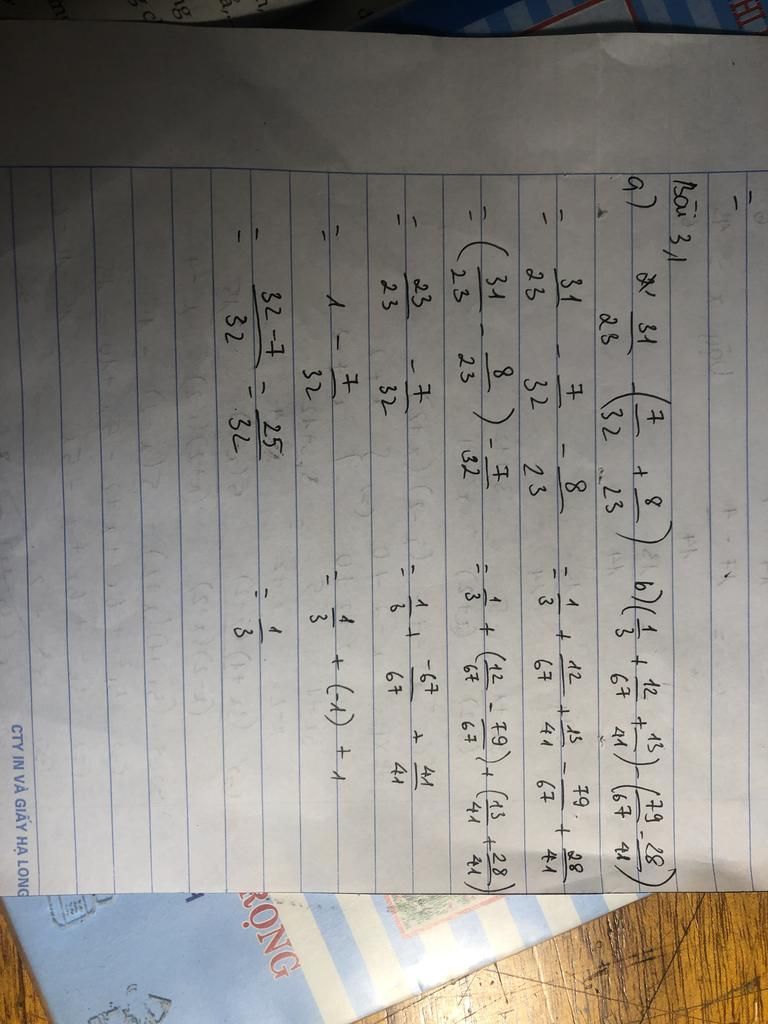 Bài 3.1
a) 31/23 - (7/32 + 8/23)
= 31/23 - 7/32 - 8/23
= (31/23 - 8/23) - 7/32
= 23/23 - 7/32
= 1 - 7/32
= (32 - 7)/32 = 25/32
b) (1/3 + 12/67 + 13/41) - (79/67 - 28/41)
= 1/3 + 12/67 + 13/41 - 79/67 + 28/41
= 1/3 + (12/67 - 79/67) + (13/41 + 28/41)
= 1/3 + -67/67 + 41/41
= 1/3 + (-1) + 1
= 1/3
CTY IN VÀ GIẤY HẠ LONG
RỌNG